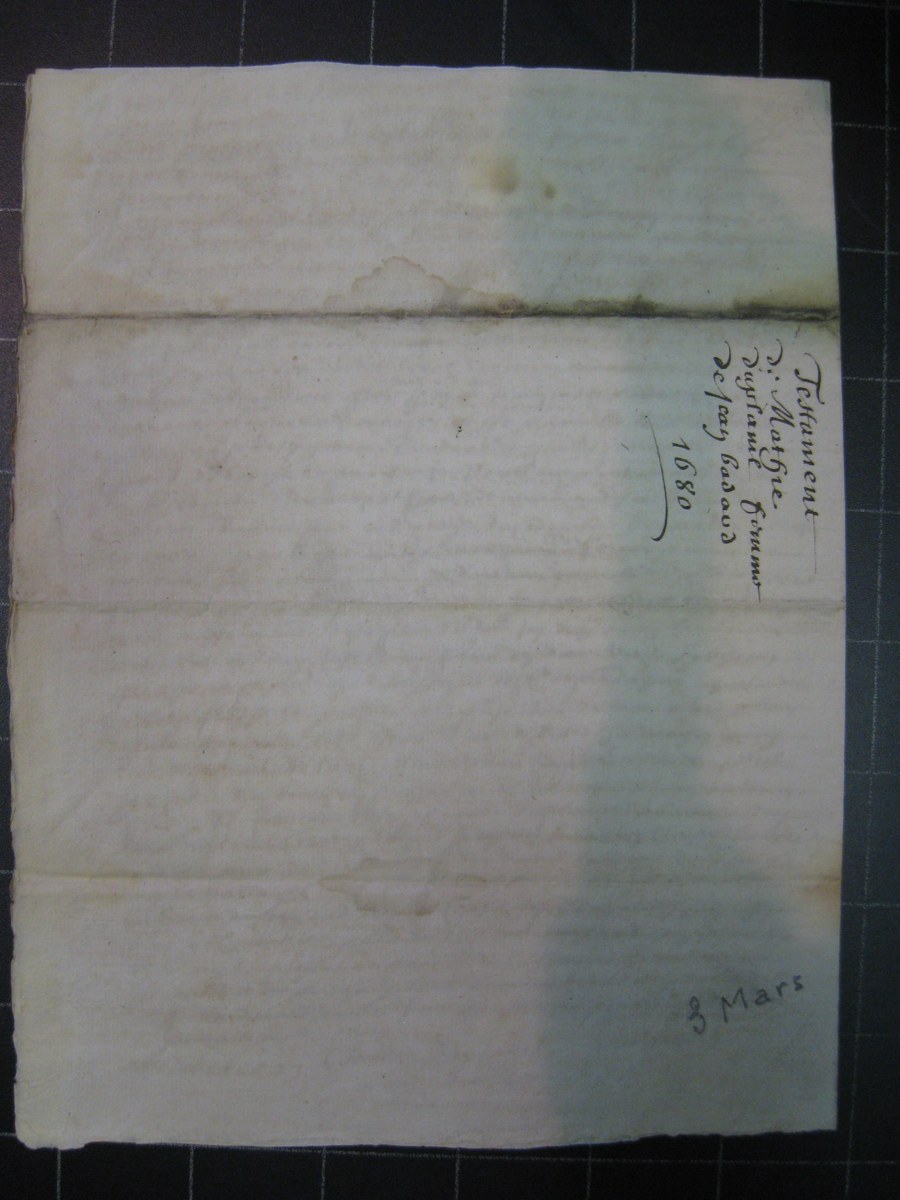 Testament
de Mathie
duplanil femme
de Jean badaud
1680
3 Mars